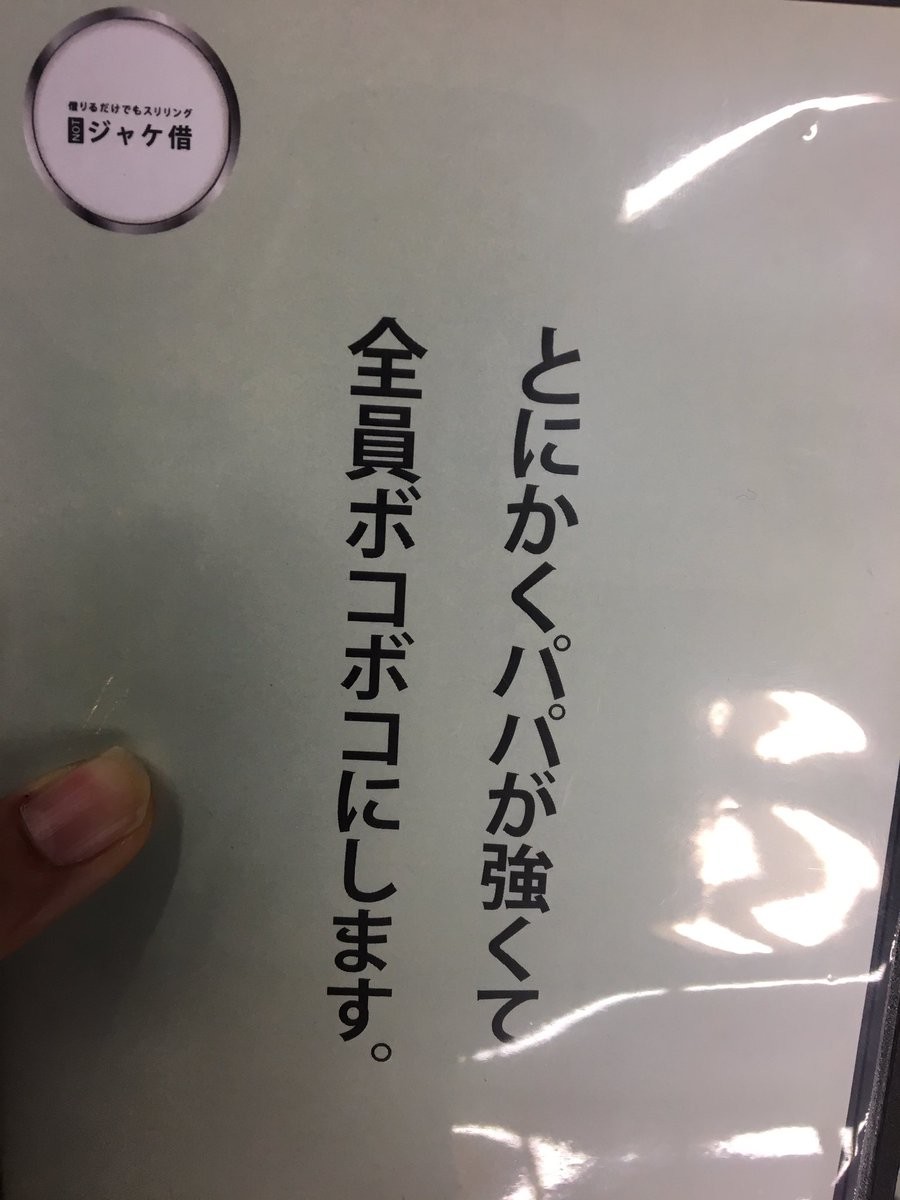 借りるだけでもスリリング
NOTジャケ借
とにかくパパが強くて
全員ボコボコにします。